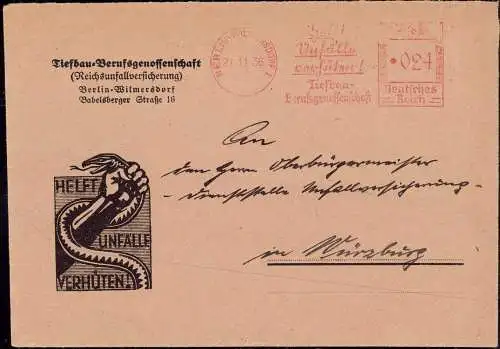 Tiefbau-Berufsgenossenschaft
(Reichsunfallversicherung)
Berlin-Wilmersdorf
Babelsberger Straße 16
21.11.36
Helft
Unfälle
verhüten!
Tiefbau-
Berufsgenossenschaft
024
Deutsches
Reich
An
den Herrn Oberbürgermeister
- Dienststelle Unfallversicherung -
in Würzburg
HELFT
UNFÄLLE
VERHÜTEN!